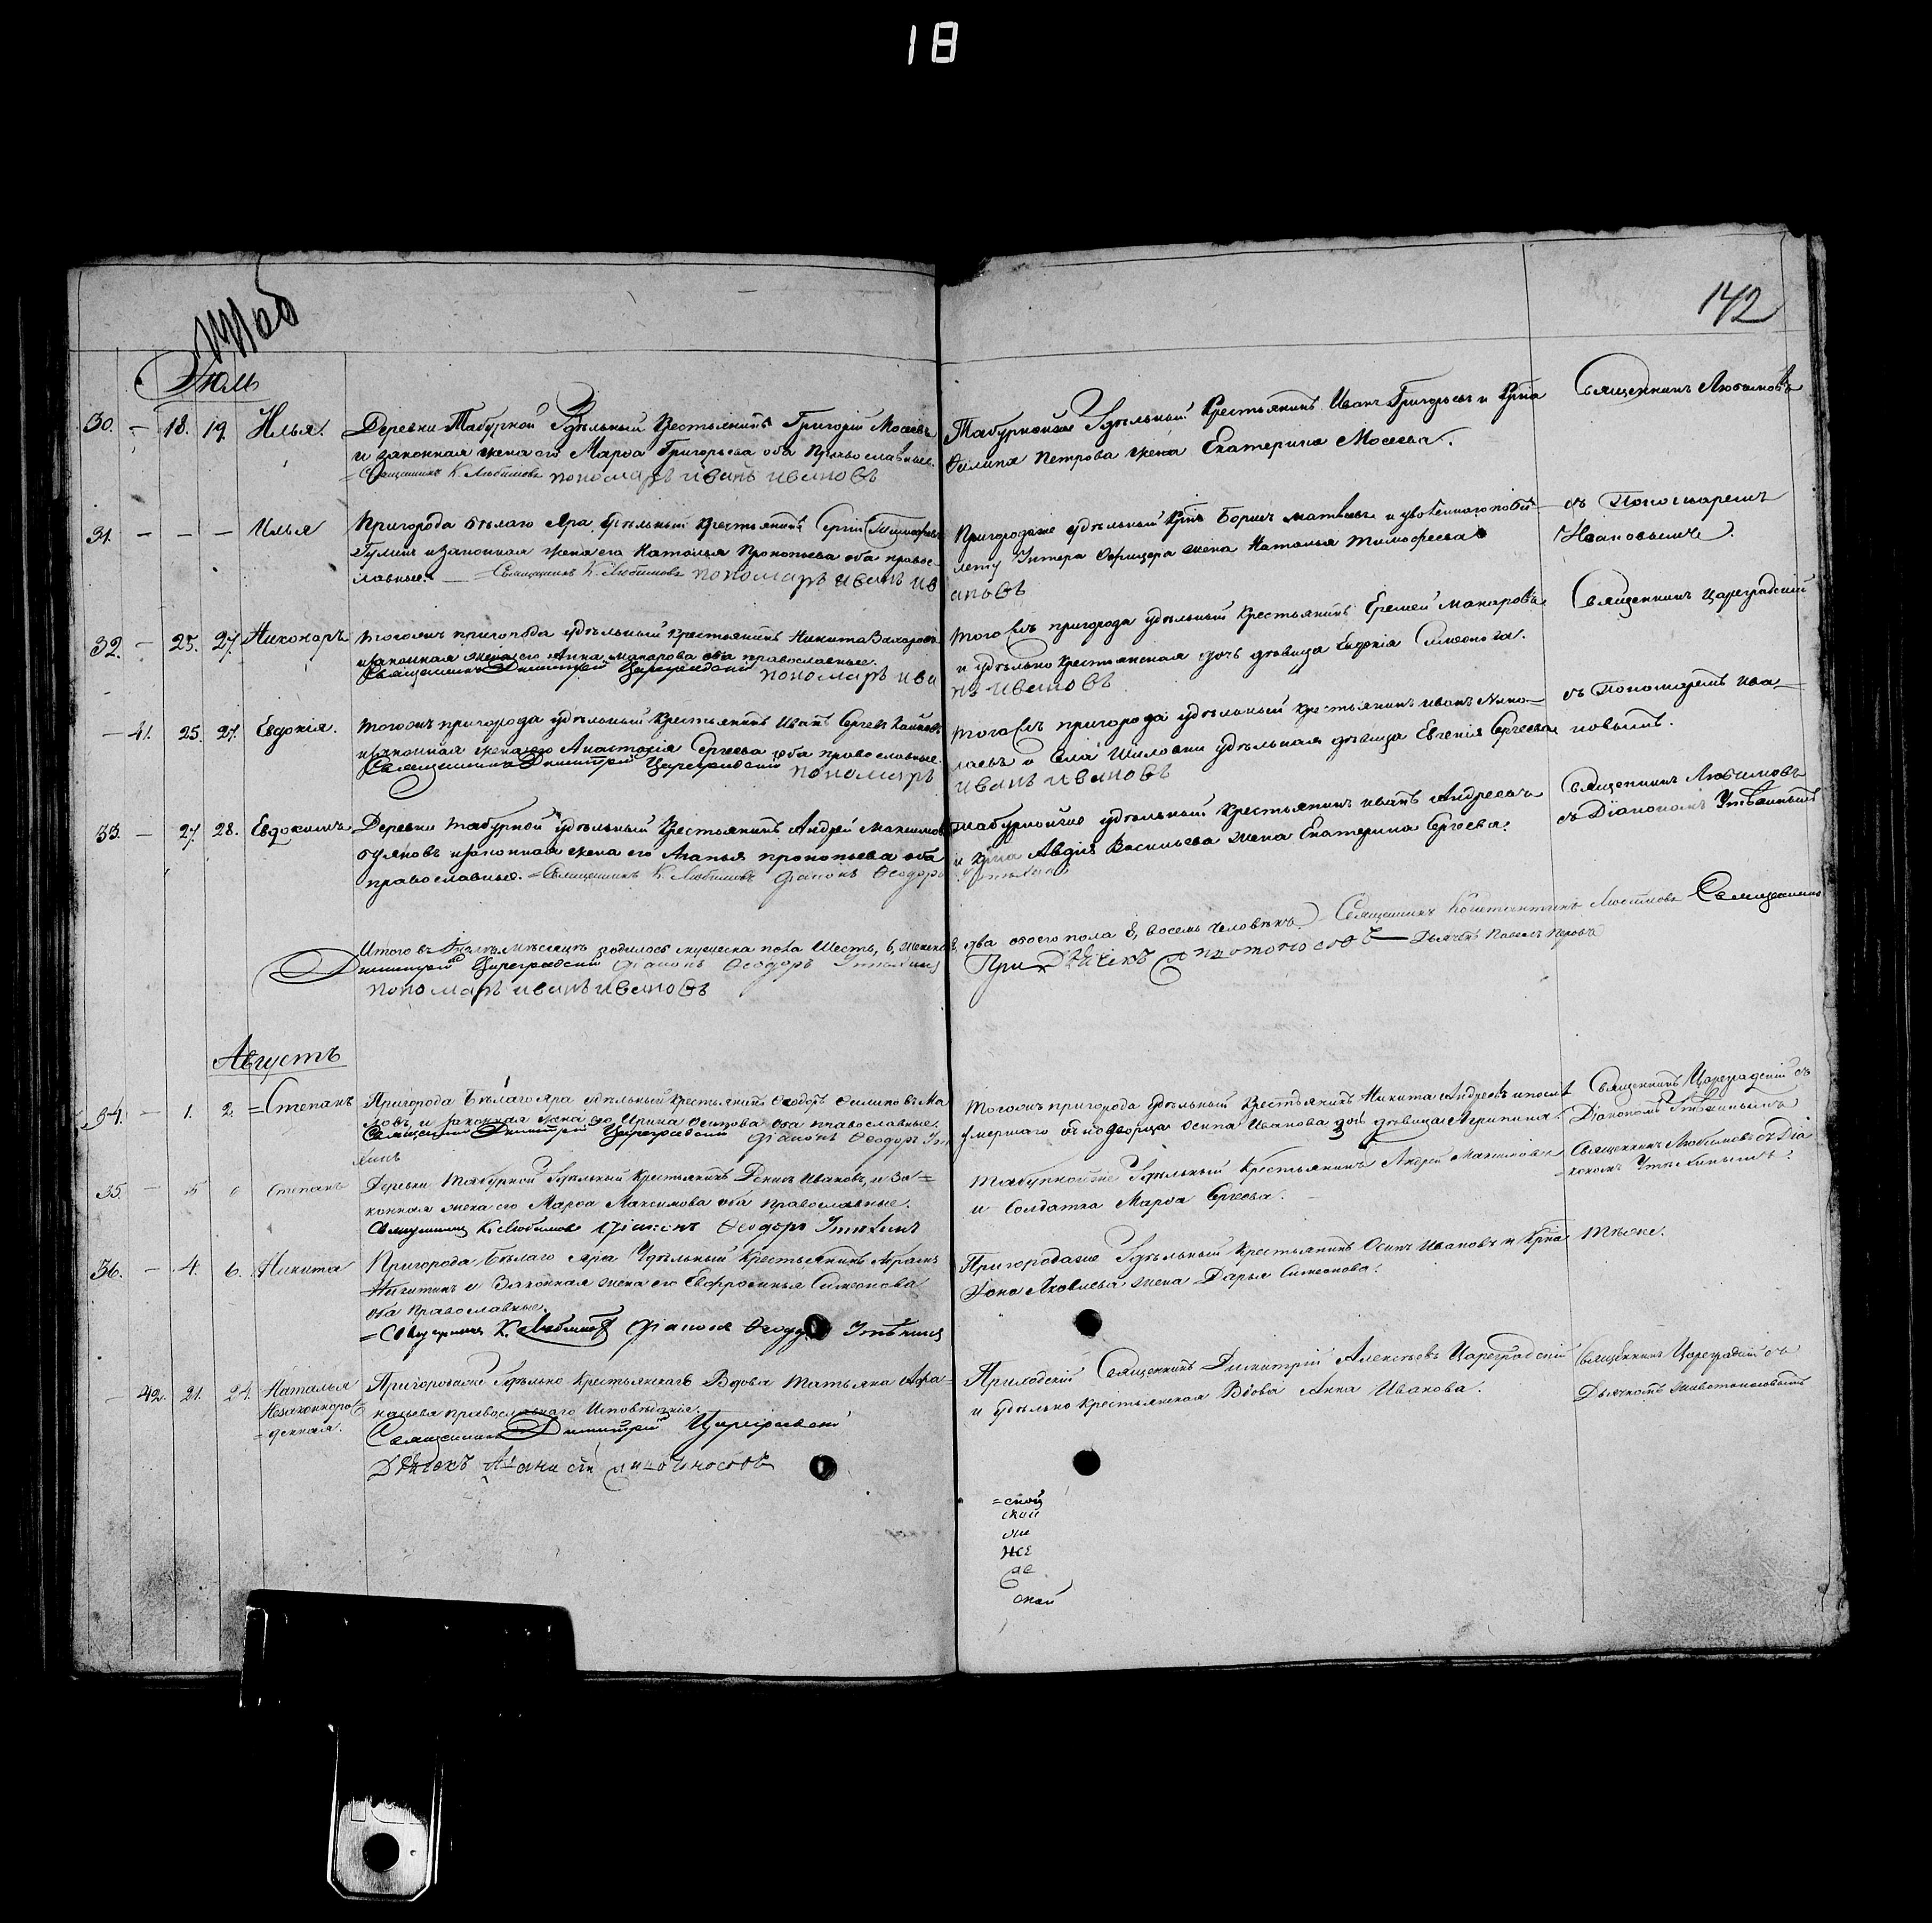 18
142
Июль
30. — 18. 19. Илья.
Деревни Табурной Удѣльный Крестьянинъ Григорій Моисеевъ
и законная жена его Марѳа Григорьева оба Православные.
Священникъ К. Любимовъ пономарь иванъ ивановъ
Табурной же Удѣльный Крестьянинъ Иванъ Григорьевъ и Крна
Филипа Петрова жена Екатерина Моисеева.
Священникъ Любимовъ
31. — — — Илья
Пригорода Бѣлаго Яра Удѣльный Крестьянинъ Сергій Тимофеевъ
Гулинъ и законная жена его Наталья Прокопьева оба право-
славные. — Священникъ К. Любимовъ пономарь иванъ ив
Пригорода же удѣльный Крнъ Борисъ Матвеевъ и уволеннаго по би-
лету Унтера Офицера жена Наталья Тимофеева
ановъ
съ Пономаремъ
Ивановымъ.
32. — 25. 27. Никоноръ
тогожъ пригорода удѣльный крестьянинъ Никита Захаровъ
и законная жена его Анна Макарова оба православные.
Священникъ Димитрій Цареградскій пономарь ива
того жъ пригорода удѣльный Крестьянинъ Еремей Макаровъ
и удѣльно крестьянская дочь дѣвица Евдокія Симеонова.
нъ ивановъ
Священникъ Цареградскій
съ Пономаремъ Ива-
новымъ.
— 41. 25. 27. Евдокія.
тогожъ пригорода удѣльный крестьянинъ Иванъ Сергеевъ
и законная жена его Анастасія Сергеева оба православные.
Священникъ Димитрій Цареградскій пономарь
того жъ пригорода удѣльный крестьянинъ иванъ Нико-
лаевъ и села Шиловки удѣльная дѣвица Евгенія Сергеева
иванъ ивановъ
33. — 27. 28. Евдокимъ
Деревни табурной удѣльный Крестьянинъ Андрей Максимовъ
и законная жена его Агапья прокопьева оба
православные. = Священникъ К. Любимовъ діаконъ Ѳеодоръ
табурной же удѣльный крестьянинъ иванъ Андреевъ
и Крна Авдія Васильева жена Екатерина Сергеева.
Утѣхинъ
Священникъ Любимовъ
съ Діакономъ Утѣхинымъ
Итого въ Іюлѣ мѣсяцѣ родилось мужеска пола шесть, 6, женска
два обоего пола 8, восемь человѣкъ. Священникъ Константинъ Любимовъ Священникъ
Димитрій Цареградскій діаконъ Ѳеодоръ Утѣхинъ
Дьячекъ Павелъ
пономарь иванъ ивановъ
Августъ
34. — 1. 2. Степанъ
Пригорода Бѣлаго Яра удѣльный крестьянинъ Ѳеодоръ Филиповъ Ма
ховъ, и законная жена его Ирина Осипова оба православные.
Священникъ Димитрій Цареградскій діаконъ Ѳеодоръ Утѣ
хинъ
Тогожъ пригорода удѣльный Крестьянинъ Никита Андреевъ и послѣ
умершаго однодворца Осипа Иванова дочь дѣвица Агрипина.
Священникъ Цареградскій съ
Діакономъ Утѣхинымъ
35. — Степанъ
Деревни Табурной Удѣльный Крестьянинъ Денисъ Ивановъ, и За-
конная жена его Марѳа Максимова оба Православные.
Священникъ К. Любимовъ діаконъ Ѳеодоръ Утѣхинъ
Табурной же Удѣльный Крестьянинъ Андрей Максимовъ
и Солдатка Марѳа Сергеева.
Священникъ Любимовъ съ Діа
кономъ Утѣхинымъ.
36. — 4. 6. Никита
Пригорода Бѣлаго Яра Удѣльный Крестьянинъ Абрамъ
Никитинъ и Законная жена его Евфросинья Симеонова
оба Православные.
= Священникъ К. Любимовъ діаконъ Ѳеодоръ Утѣхинъ
Пригорода же Удѣльный Крестьянинъ Осипъ Ивановъ и Крна
Яковлева жена Дарья Симеонова.
Тѣже.
— 42. 21. 24. Наталья
Незаконнорож
= денная.
Пригорода же Удѣльно Крестьянская Вдова Татьяна Афа-
насьева православнаго Исповѣданія.
Священникъ Димитрій Цареградскій
Дьячекъ
Приходскій Священникъ Димитрій Алексѣевъ Цареградскій
и удѣльно крестьянская Вдова Анна Иванова.
Священникъ Цареградскій съ
Дьячкомъ Животоносовымъ
= ской
ской
же
ской